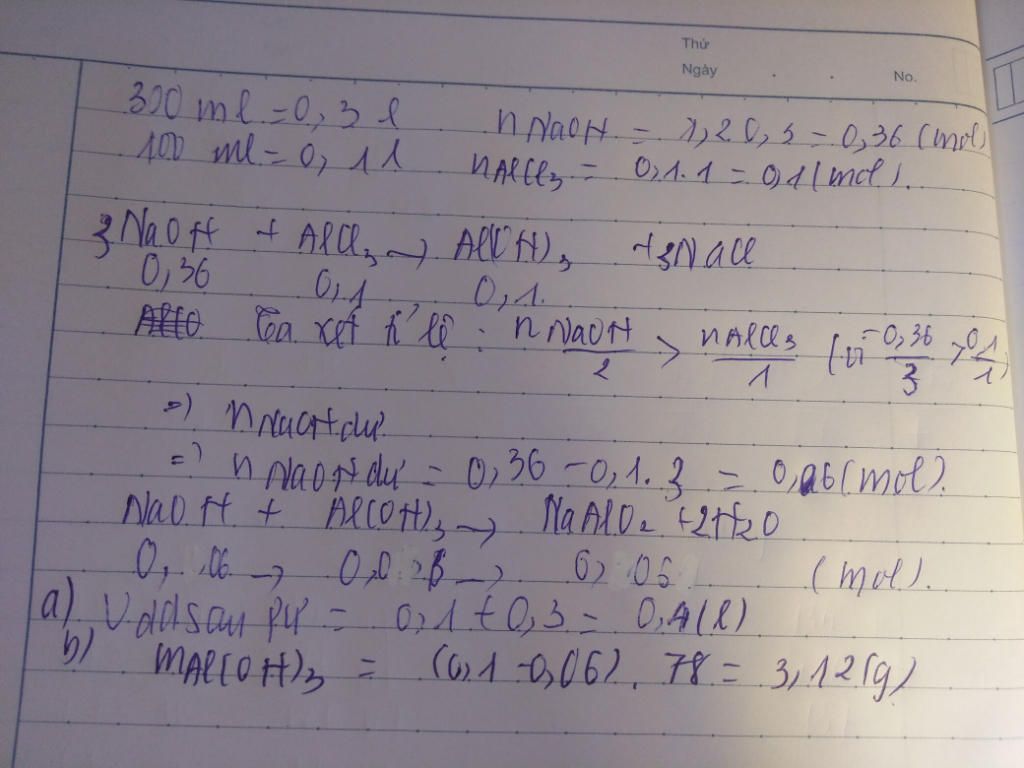 Thứ
Ngày . . No.
300 ml = 0,3 l nNaOH = 1,2 0,3 = 0,36 (mol)
100 ml = 0,1 l nAlCl3 = 0,1.1 = 0,1 (mol).
3NaOH + AlCl3 → Al(OH)3 + 3NaCl
0,36 0,1 0,1.
Ta xét tỉ lệ : nNaOH/2 > nAlCl3/1 (vì 0,36/3 > 0,1/1)
=) nNaOH dư
=) nNaOH dư = 0,36 - 0,1.3 = 0,06 (mol).
NaOH + Al(OH)3 → NaAlO2 + 2H2O
0,06 → 0,06 → 0,06 (mol).
a) Vdd sau pứ = 0,1 + 0,3 = 0,4 (l)
b) mAl(OH)3 = (0,1 - 0,06) . 78 = 3,12 (g)